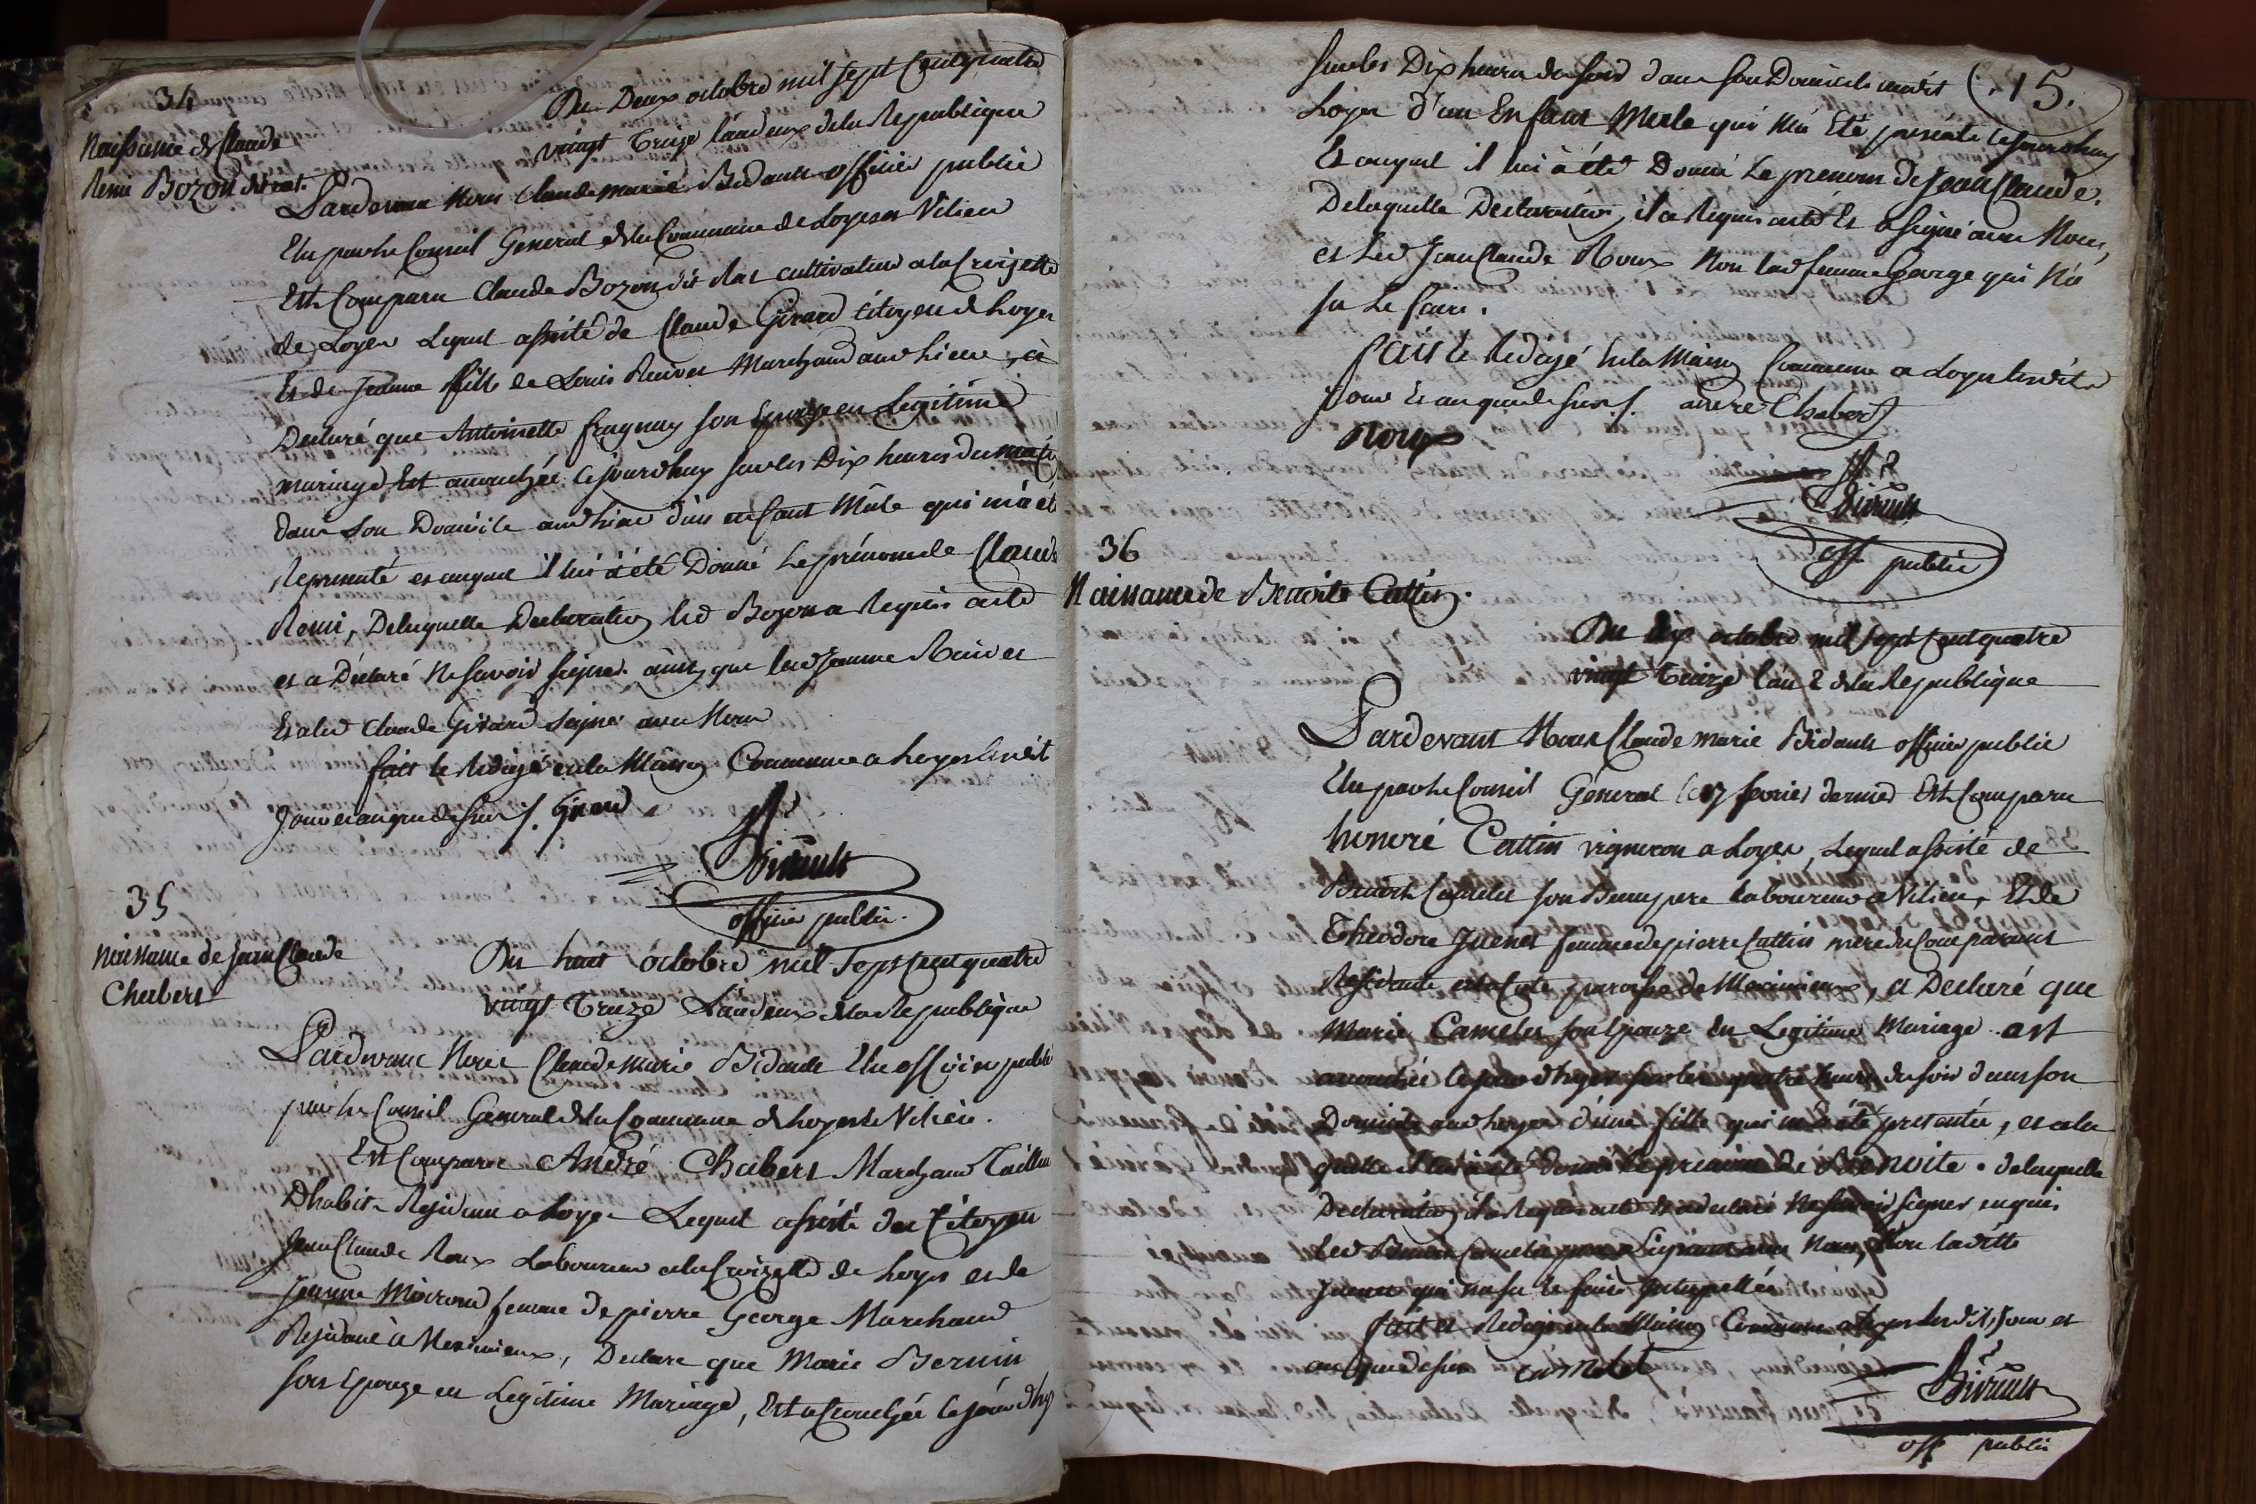 34
Naissance de Claude
Remi Bozon dit rat.
Du Deux octobre mil sept Cent quatre
vingt treize l'an deux de la Republique
Pardevant Nous Claude marie Bidault officier public
Elu par le Conseil General de la Commune de Loyes et Vilieu
Est Comparu Claude Bozon dit Rat cultivateur a la Croizette
de Loyes Lequel assisté de Claude Girard citoyen de Loyes
Et de Jeanne fille de Louis Marchand aud lieu, a
Declaré que Antoinette son Epouze en Legitime
mariage Est accouchée Cejourdhuy sur les Dix heures du matin
dans son Domicile aud lieu d'un enfant Mâle qui m'a été
Representé et auquel il lui a été Donné le prénom de Claude
Remi, De laquelle Declaration led Bozon a Requis acte
et a Déclaré Ne savoir signer ainsy que lad Jeanne
Et a led Claude Girard signé avec Nous
fait et Redigé en la Maison Commune a Loyes lesdit
Jour et an que dessus /. Girard
Bidault
officier public.
35
naissance de Jean Claude
Chabert
Du huit octobre mil sept Cent quatre
vingt treize L'an deux de la Republique
Pardevant Nous Claude Marie Bidault Elu officier public
par le Conseil General de la Commune de Loyes et Vilieu.
Est Comparu André Chabert Marchand Tailleur
D'habit Residant a Loyes Lequel assisté du Citoyen
Jean Claude Roux Laboureur a la Croizette de Loyes et de
Jeanne Moiroud femme de pierre George Marchand
Residant à Meximieux, Declare que Marie Bernin
son Epouze en Legitime Mariage, Est accouchée Cejourdhuy
15.
sur les Dix heures du soir dans son Domicile audit
Loyes d'un Enfant Mâle qui m'a Eté presenté Cejourdhuy
Et auquel il lui a été Donné Le prenom de Jean Claude.
De laquelle Declaration, il a Requis acte Et a signé avec Nous,
et led Jean Claude Roux Non lad femme George qui N'a
su Le faire.
fait et Redigé En la Maison Commune a Loyes lesdits
Jour Et an que dessus /. andre Chabert
Roux
Bidault
off. public
36
Naissance de Benoite Cattin.
Du dix octobre mil sept Cent quatre
vingt treize l'an 2 de la Republique
Pardevant Nous Claude marie Bidault officier public
Elu par le Conseil Géneral le 17 fevrier dernier Est Comparu
honoré Cattin vigneron a Loyes, Lequel assisté de
Benoit Camelet son Beaupere Laboureur a Vilieu, Et de
Theodore Juenet femme de pierre Cattin mere du Comparant
Residante en la Cote paroisse de Meximieux, a Declaré que
Marie Camelet son Epouze En Legitime Mariage est
accouchée Cejourd'huy sur les quatre heures du soir dans son
Domicile aud Loyes d'une fille qui m'a été presentée, et a la
quelle il lui a été donné le prenom de Benoite. de laquelle
Declaration, il a Requis acte et a declaré Ne savoir signer, enquis
Led Benoit Camelet a signé avec Nous, Non laditte
Juenet qui n'a su le faire Interpellée
fait et Redigé en la Maison Commune a Loyes lesdits jour et
an que dessus camelet
Bidault
off public